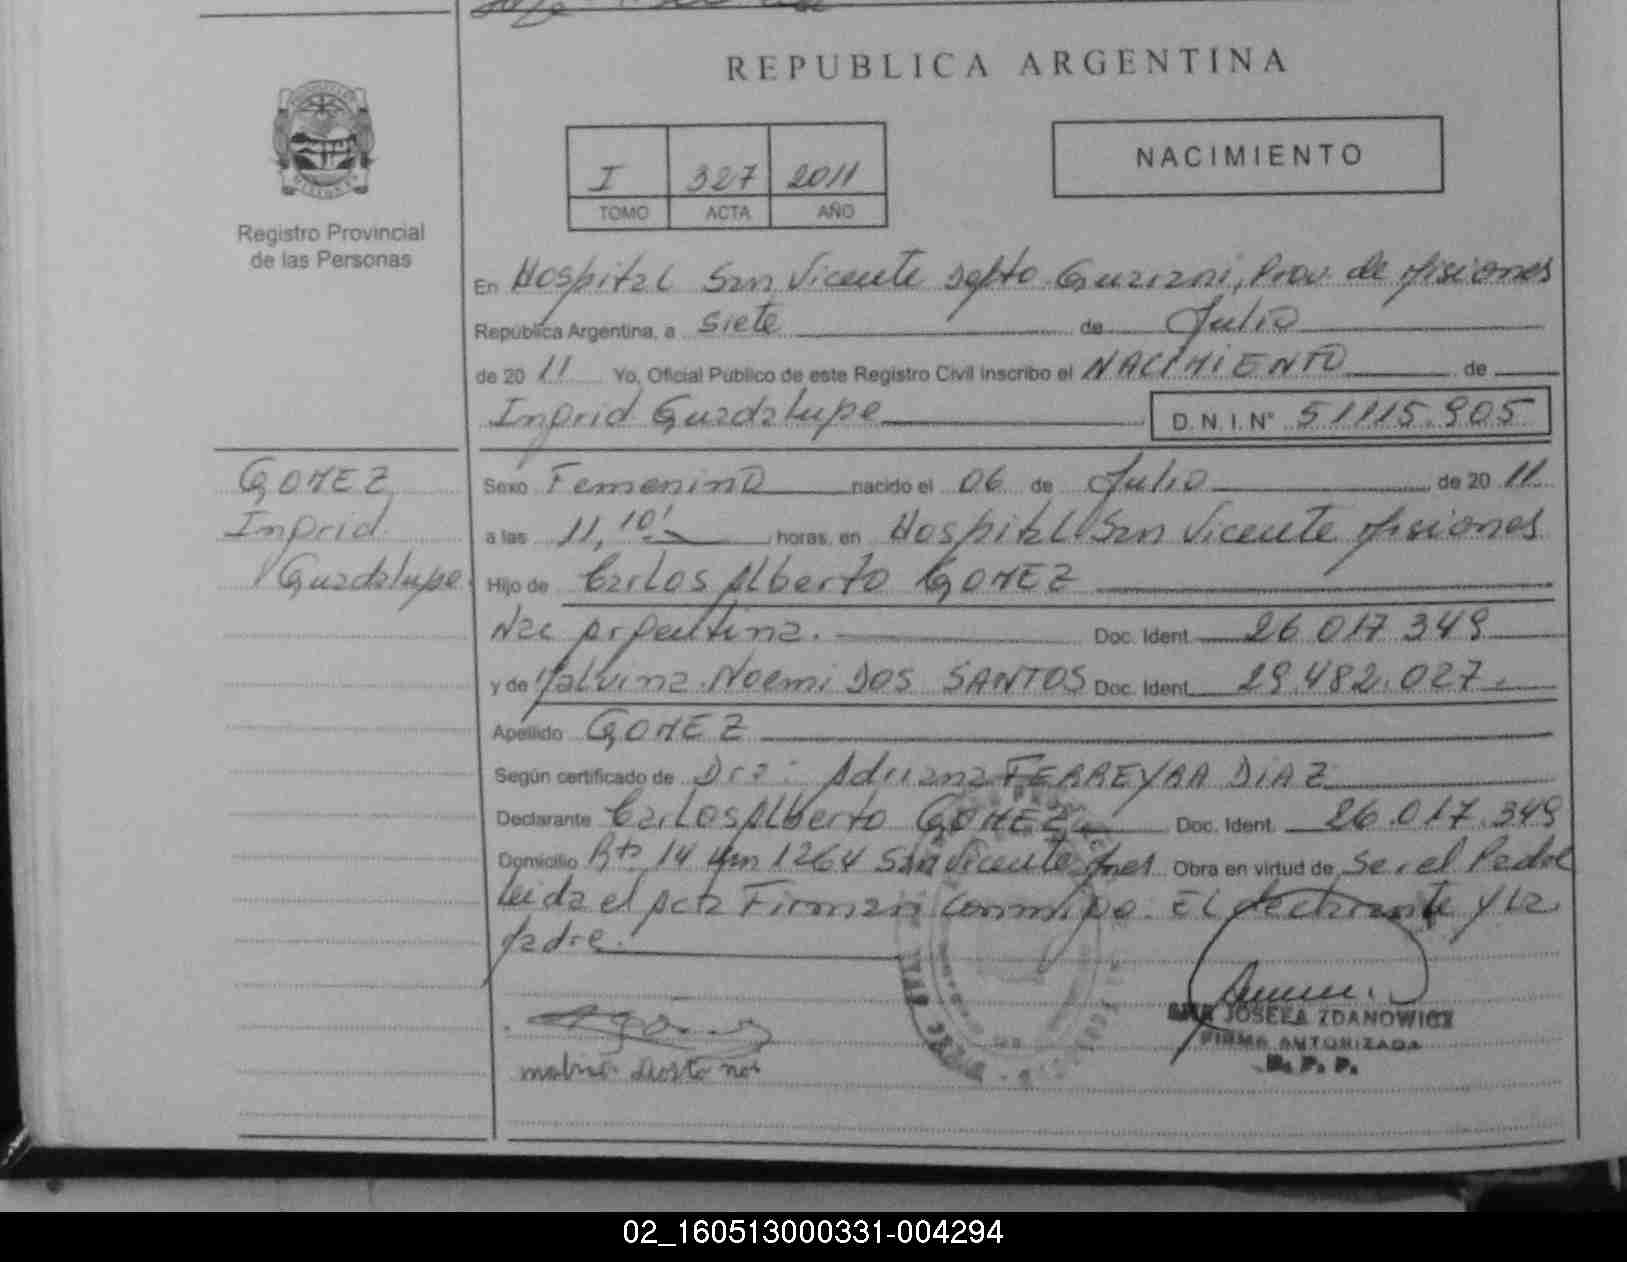 REPUBLICA ARGENTINA
NACIMIENTO
I 327 2011
TOMO ACTA AÑO
Registro Provincial
de las Personas
En Hospital San Vicente Depto. Guarani, Prov. de Misiones
República Argentina, a Siete de Julio
de 2011 Yo, Oficial Publico de este Registro Civil inscribo el NACIMIENTO de
Ingrid Guadalupe D.N.I.N° 51115.905
GOMEZ
Ingrid
Guadalupe
Sexo Femenino nacido el 06 de Julio de 2011
a las 11,10' horas, en Hospital San Vicente Misiones
Hijo de Carlos Alberto GOMEZ
Nac Argentina. Doc. Ident. 26.017.349
y de Malvina Noemi DOS SANTOS Doc. Ident. 29.482.027.
Apellido GOMEZ
Según certificado de Dra: Adriana FERREYRA DIAZ
Declarante Carlos Alberto GOMEZ Doc. Ident. 26.017.349
Domicilio Rta 14 Km 1264 San Vicente Mnes Obra en virtud de Ser el Padre
Leida el Acta Firman conmigo. El declarante y La
Madre.
JOSEFA ZDANOWICZ
FIRMA AUTORIZADA
R. P. P.
02_160513000331-004294